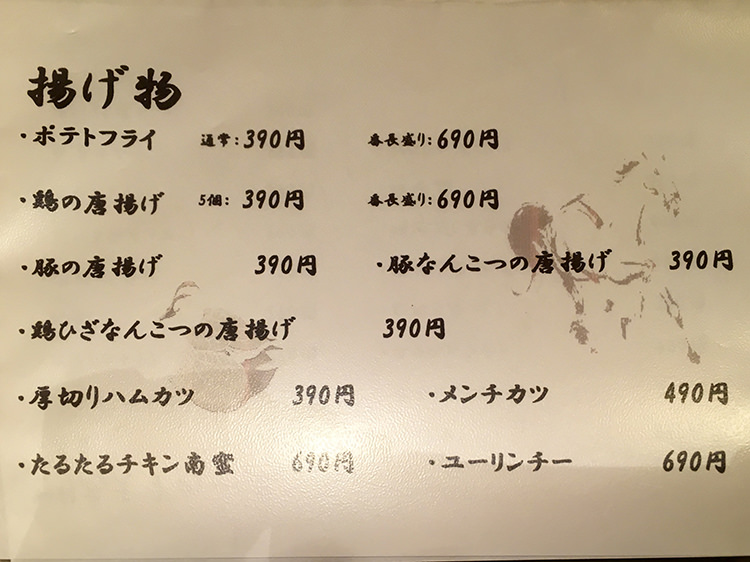 揚げ物
・ポテトフライ 通常：390円 番長盛り：690円
・鶏の唐揚げ 5個： 390円 番長盛り：690円
・豚の唐揚げ 390円 ・豚なんこつの唐揚げ 390円
・鶏ひざなんこつの唐揚げ 390円
・厚切りハムカツ 390円 ・メンチカツ 490円
・たるたるチキン南蛮 690円 ・ユーリンチー 690円